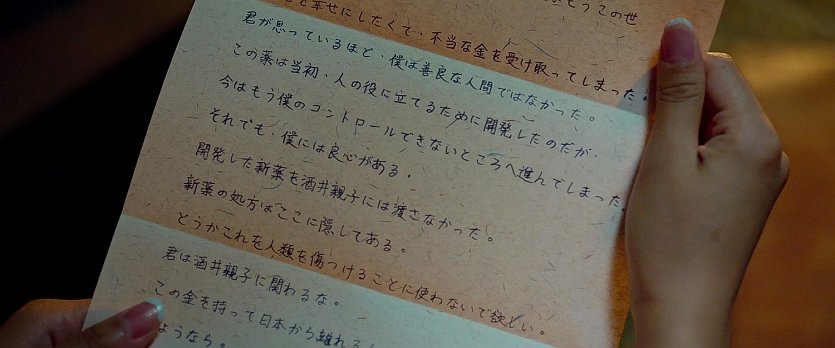 もうこの世
と幸せにしたくて、不当な金を受け取ってしまった。
君が思っているほど、僕は善良な人間ではなかった。
この薬は当初、人の役に立てるために開発したのだが、
今はもう僕のコントロールできないところへ進んでしまった。
それでも、僕には良心がある。
開発した新薬を酒井親子には渡さなかった。
新薬の処方はここに隠してある。
どうかこれを人類を傷つけることに使わないで欲しい。
君は酒井親子に関わるな。
この金を持って日本から離れる
ようなら。